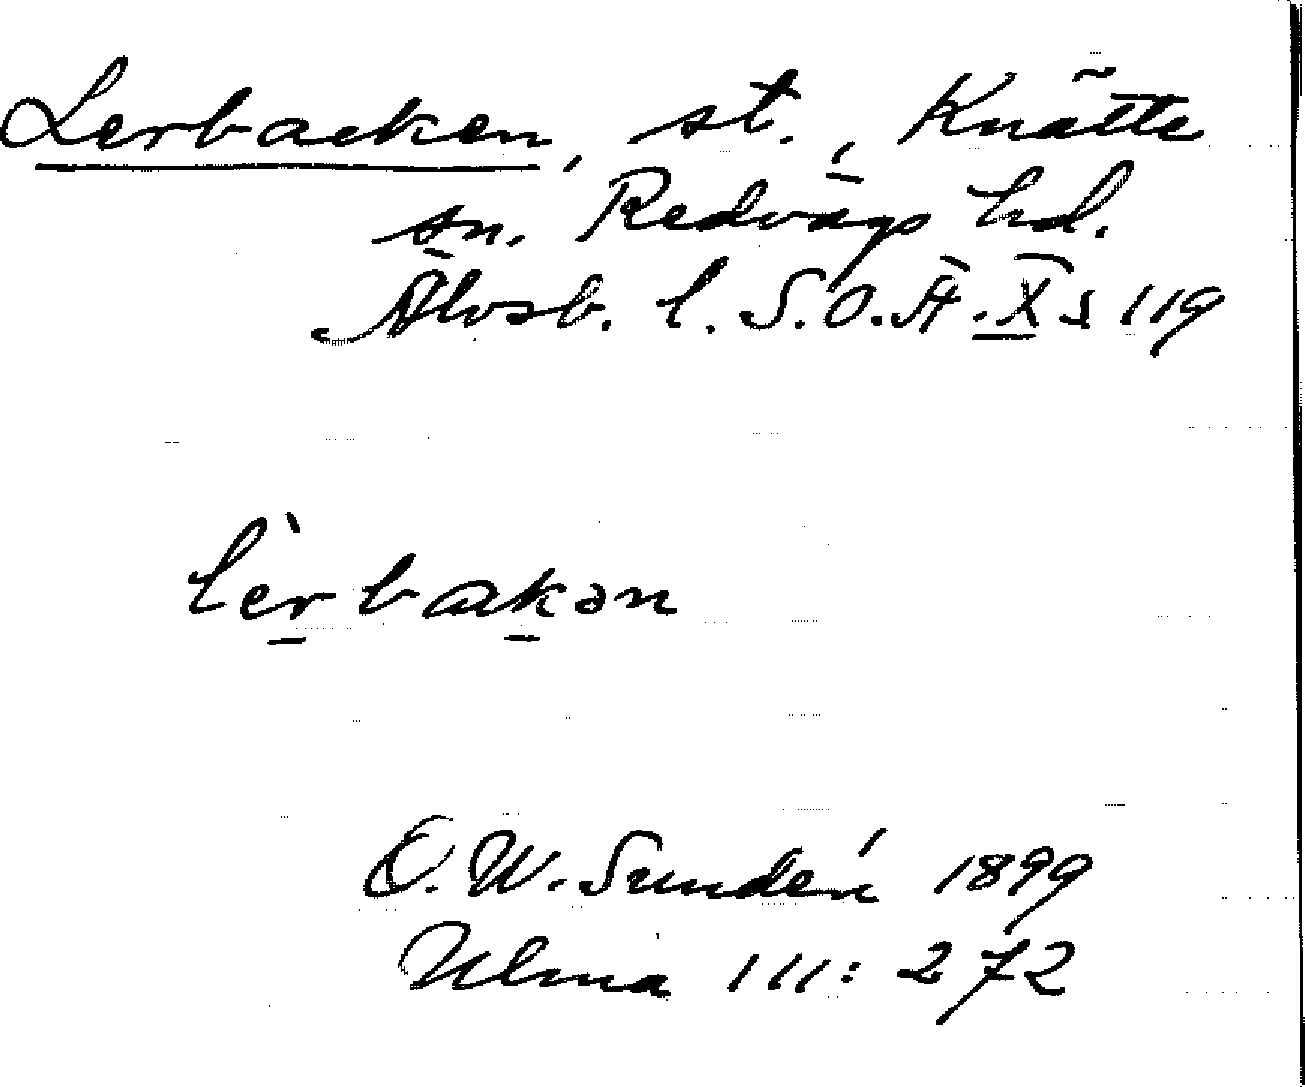 Lerbacken, st., Knätte
sn. Redvägs hd.
Älvsb. l. S.O.Ä. X s 119
lèrbakən
O. W. Sundén 1899
Ulma 111: 272